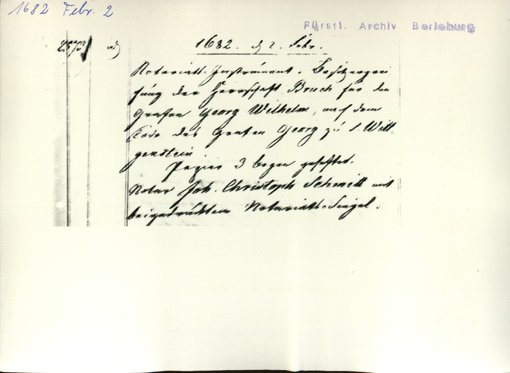 1682 Febr. 2
Fürstl. Archiv Berleburg
1682. d. 2. Febr.
Notariats-Instrument. Besitzergrei-
fung der Herrschaft Bruch für den
Grafen Georg Wilhelm, nach dem
Tode des Grafen Georg zu S. Witt-
genstein
Papier 3 bogen geheftet.
Notar Joh. Christoph Schmitt mit
beigedrücktem Notariats-Siegel.